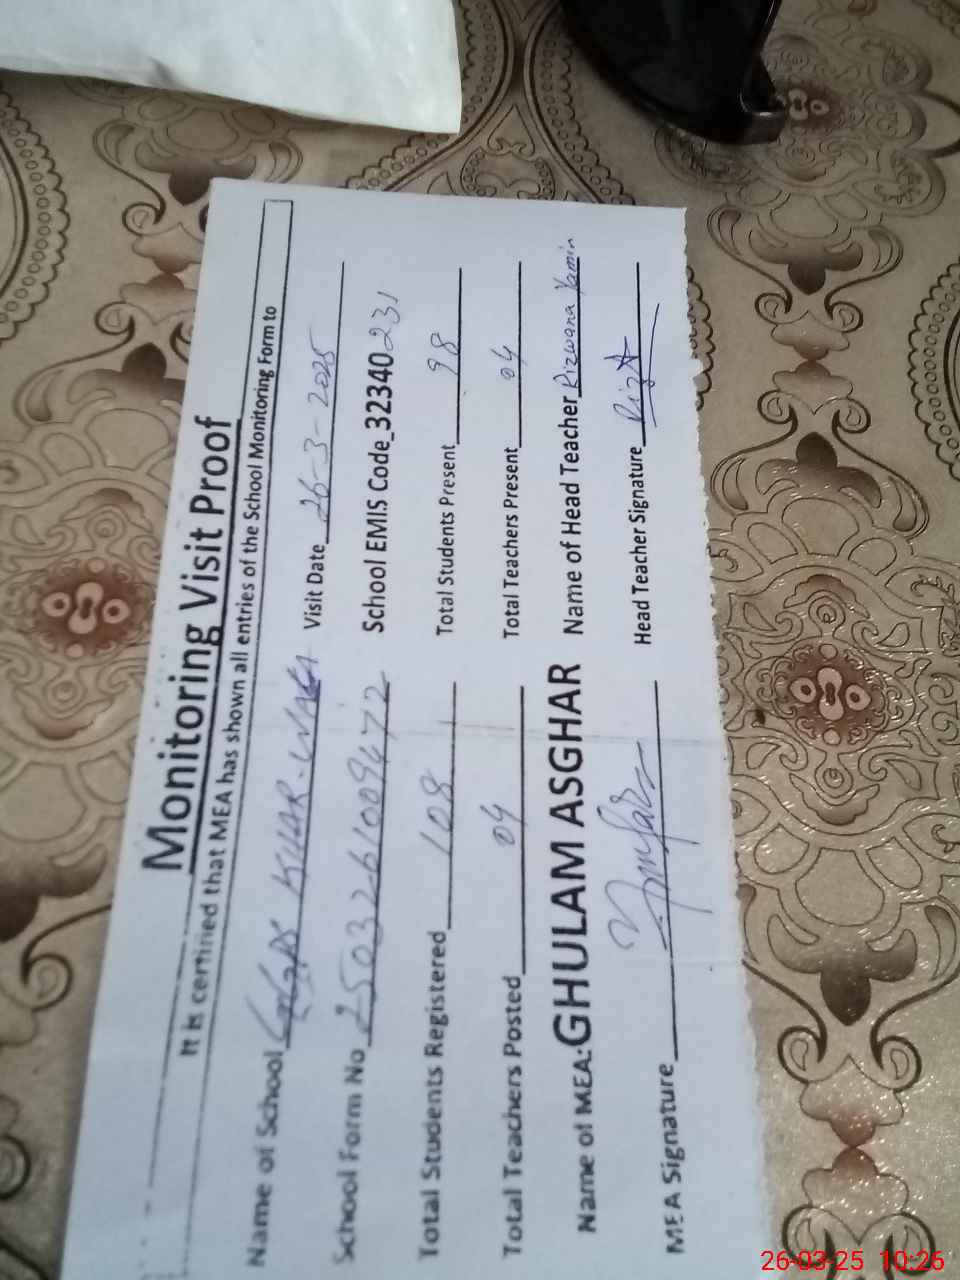 Monitoring Visit Proof
It is certified that MEA has shown all entries of the School Monitoring Form to
Name of School GGPS KHAR-WALA Visit Date 26-3-2025
School Form No 2503261009472 School EMIS Code 32340231
Total Students Registered 108 Total Students Present 98
Total Teachers Posted 04 Total Teachers Present 04
Name of MEA: GHULAM ASGHAR Name of Head Teacher Rizwana Yamin
MEA Signature Head Teacher Signature
26-03-25 10:26